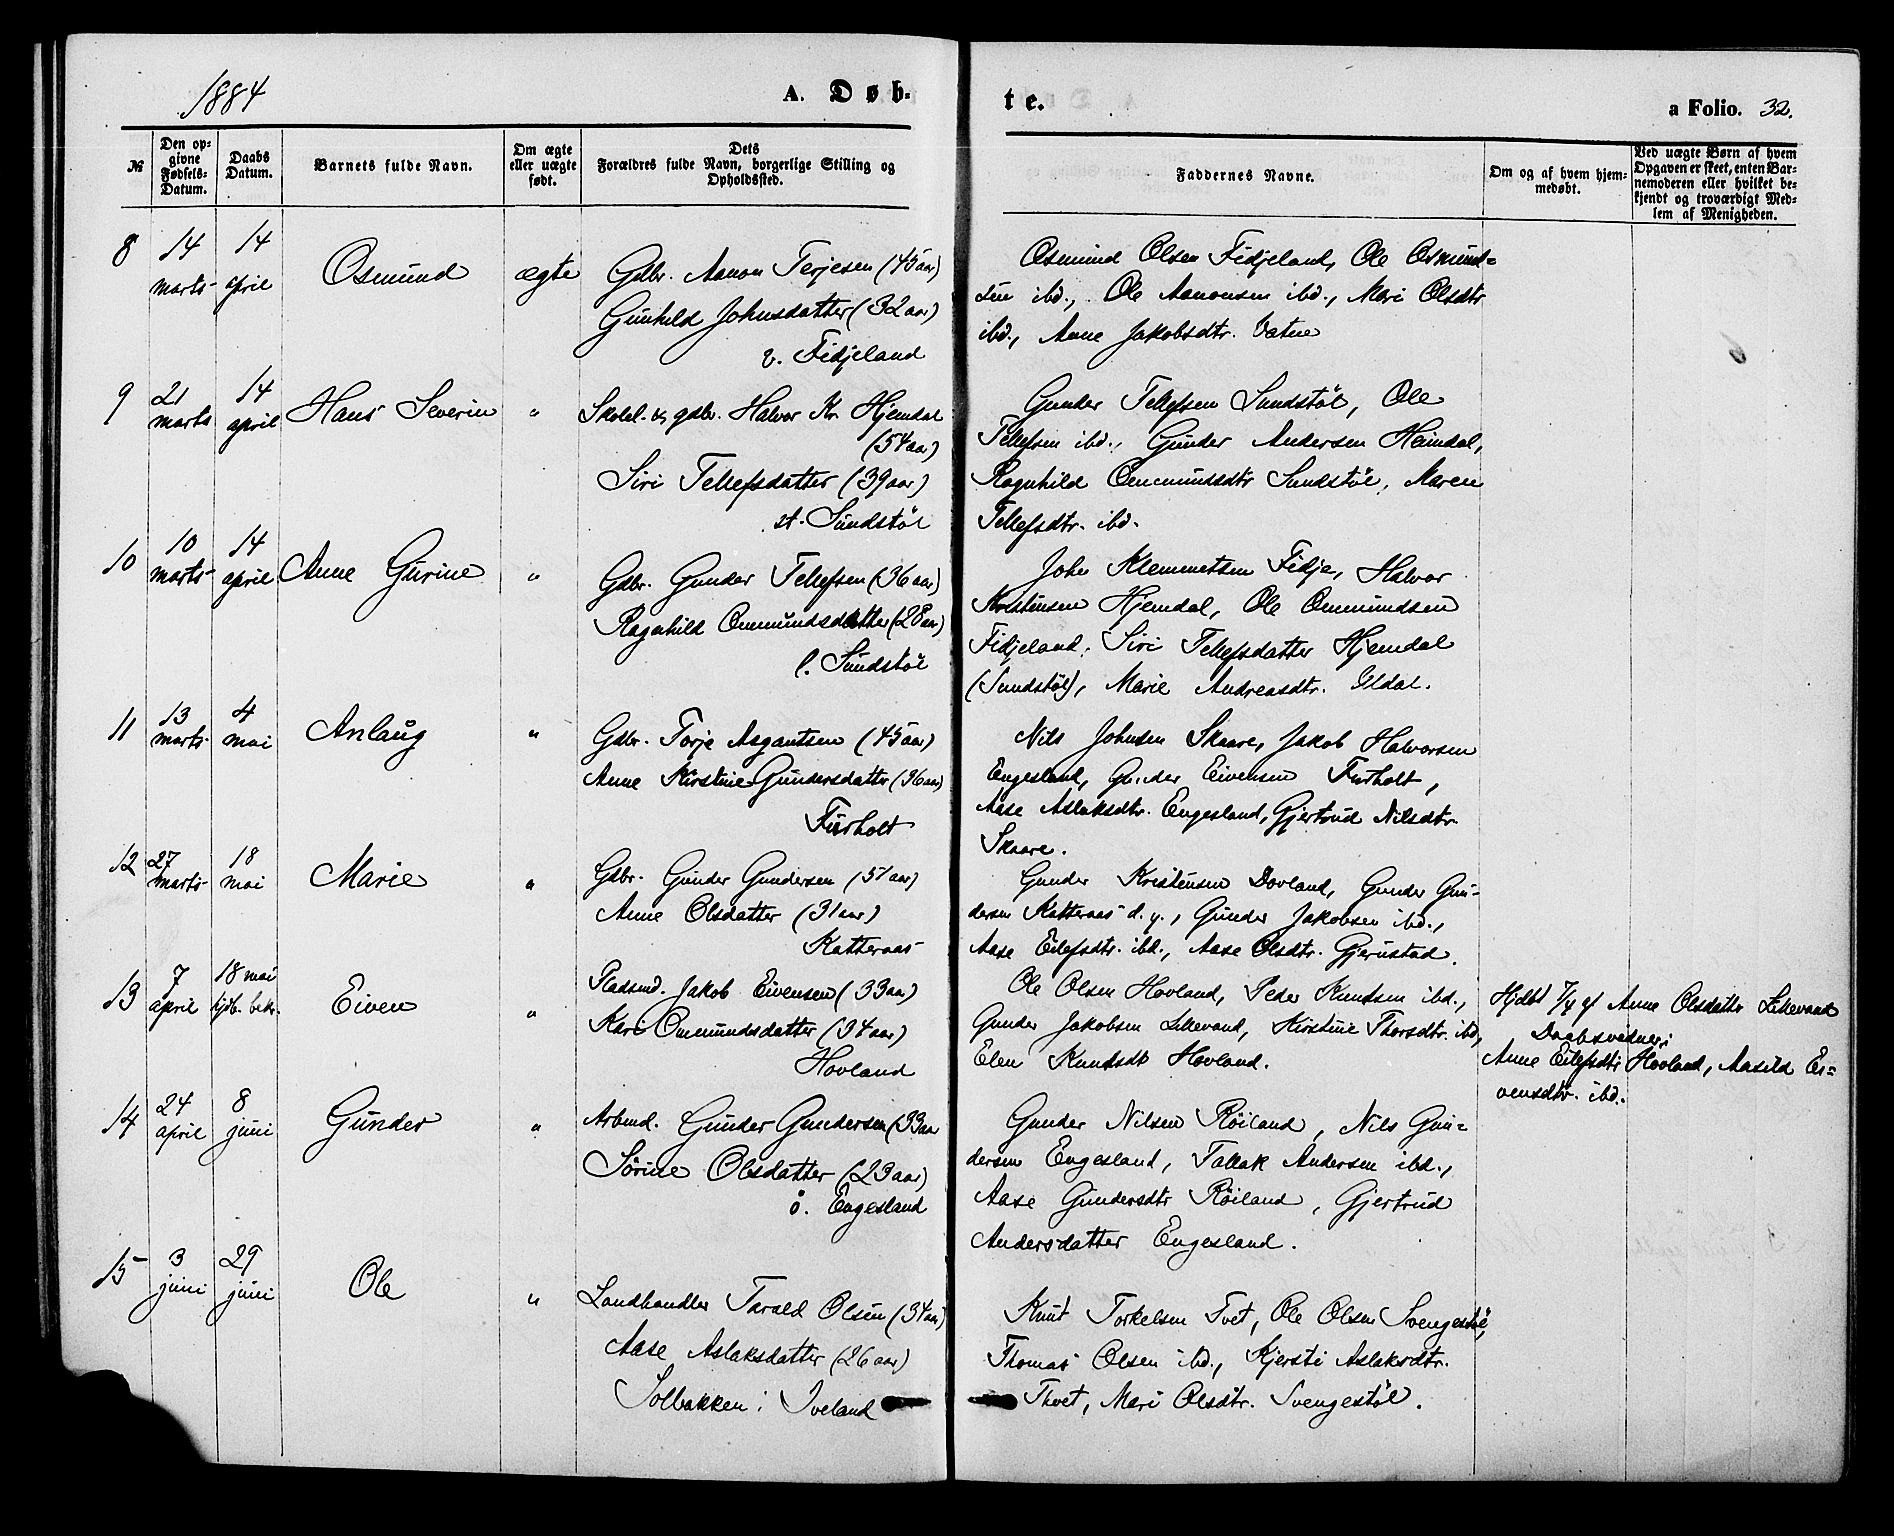 1884
A. Døb-
te.
a Folio. 32.
№
Den op-
givne
Fødsels-
Datum.
Daabs
Datum.
Barnets fulde Navn.
Om ægte
eller uægte
født.
Dets
Forældres fulde Navn, borgerlige Stilling og
Opholdssted.
Faddernes Navne.
Om og af hvem hjem-
medøbt.
Ved uægte Børn af hvem
Opgaven er skeet, enten Bar-
nemoderen eller hvilket be-
kjendt og troværdigt Med-
lem af Menigheden.
8
14
marts
14
april
Osmund
ægte
Gdbr. Aanon Terjesen (45 aar)
Gunhild Johnsdatter (32 aar)
v. Fidjeland
Osmund Olsen Fidjeland, Ole Osmund=
sen ibd., Ole Aanonsen ibd., Mari Olsdtr
ibd., Anne Jakobsdtr. Vatne
9
21
marts
14
april
Hans Severin
"
Skolel. & gdbr. Halvor Kr. Hjemdal
(54 aar)
Siri Tellefsdatter (39 aar)
st. Sundstøl
Gunder Tellefsen Sundstøl, Ole
Tellefsen ibd., Gunder Andersen Heimdal,
Ragnhild Ommundsdtr Sundstøl, Maren
Tellefsdtr. ibd.
10
10
marts
14
april
Anne Gurine
"
Gdbr. Gunder Tellefsen (36 aar)
Ragnhild Ommundsdatter (28 aar)
l. Sundstøl
John Klemmetsen Fidje, Halvor
Kristensen Hjemdal, Ole Ommundsen
Fidjeland, Siri Tellefsdatter Hjemdal
(Sundstøl), Marie Andreasdtr. Udal.
11
13
marts
4
mai
Anlaug
"
Gdbr. Torje Asgautsen (45 aar)
Anne Kirstine Gundersdatter (36 aar)
Furholt
Nils Johnsen Skaare, Jakob Halvorsen
Engesland, Gunder Eivensen Furholt,
Aase Aslaksdtr. Engesland, Gjertrud Nilsdtr
Skaare.
12
27
marts
18
mai
Marie
"
Gdbr. Gunder Gundersen (37 aar)
Anne Olsdatter (31 aar)
Katteraas
Gunder Kristensen Dovland, Gunder Gun-
dersen Katteraas d. y., Gunder Jakobsen ibd.,
Aase Eilefsdtr. ibd., Aase Olsdtr. Gjerustad.
13
7
april
18 mai
hjdb. bekr.
Eiven
"
Pladsmd. Jakob Eivensen (33 aar)
Kari Ommundsdatter (34 aar)
Hovland
Ole Olsen Hovland, Peder Knudsen ibd.,
Gunder Jakobsen Lillevand, Kirstine Thorsdtr. ibd,
Elen Knudsdtr Hovland.
Hjdbt 7/4 af Anne Olsdatter Lillevand
Daabsvidner:
Anne Eilefsdtr Hovland, Aasild Ei=
vensdtr. ibd.
14
24
april
8
juni
Gunder
"
Arbmd. Gunder Gundersen (33 aar
Sørine Olsdatter (23 aar)
ö. Engesland
Gunder Nilsen Røiland, Nils Gun=
dersen Engesland, Tallak Andersen ibd.,
Aase Gundersdtr Røiland, Gjertrud
Andersdatter Engesland.
15
3
juni
29
juni
Ole
"
Landhandler Tarald Olsen (34 aar)
Aase Aslaksdatter (26 aar)
Solbakken i Iveland
Knut Torkelsen Tvet, Ole Olsen Svengestøl,
Thomas Olsen ibd., Kjersti Aslaksdtr.
Thvet, Mari Olsdtr. Svengestøl.